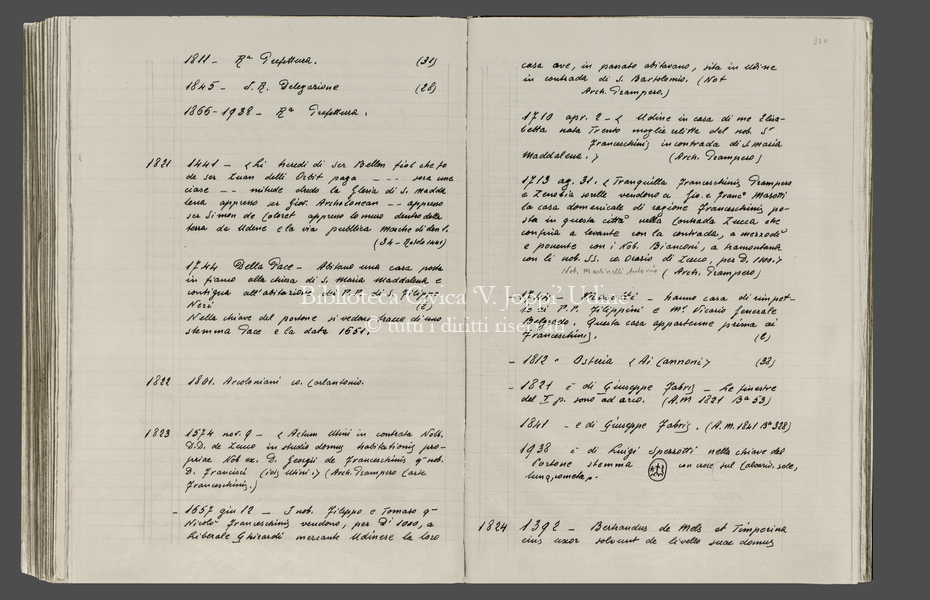 1811 - Rª Prefettura. (31)
1845 - I. R. Delegazione (28)
1866-1938 - Rª Prefettura.
1821 1441 - < Li heredi di ser Bellon
de ser Zuan delli Orbit paga
Gleria di S. Madda
lena appresso ser Giov. Archolonean -- appresso
ser Simon de Coloret appresso lo muro dentro della
terra da Udene e la via publica
(34 - Rotolo 1441)
1744 Della Pace - Abitano una casa posta
in fianco alla chiesa di S. Maria Maddalena e
contigua all'abitazione di P.P. di S. Filippo
Neri (2)
Nella chiave del portone si vedono tracce di uno
stemma Pace e la data 1651.
1822 1801. Arcoloniani co. Carlantonio.
1823 1574 nov. 9 - < Actum Utini in contrata Nob.
D.D. de Zucco in studio domus habitationis pro-
priae Nob. ex. D. Georgii de Franceschinis qm nob.
D. Francisci (Arch. Prampero Carte
Franceschinis.)
- 1657 giu 12 - I nob. Filippo e Tomaso qm
Nicolò Franceschinis vendono, per D.ti 1000, a
Liberale Ghirardi mercante Udinese la loro
230
casa ove, in passato abitavano, sita in Udine
in contrada di S. Bartolomio. (Not
Arch. Prampero.)
1710 apr. 2 - < Udine in casa di me Elisa-
betta nata Trento moglie relitta del nob. Sr
Franceschinis in contrada di S. Maria
Maddalena. > (Arch. Prampero)
1713 ag. 31. < Tranquilla Franceschinis Prampero
e Zenobia sorelle vendono a Gio. e Franc.º Marotti
la casa domenicale di ragione Franceschinis po-
sta in questa città nella Contrada Zucca che
confina a levante con la contrada, a mezzodì
e ponente con i Nob. Bianconi, a tramontana
con li nob. SS. co Orazio di Zucco, per D. 1000. >
Not. Martinelli Antonio (Arch. Prampero)
hanno casa di rimpet-
to ai P.P. Filippini e Mr. Vicario Generale
Belgrado. Questa casa appartenne prima ai
Franceschinis. (2)
- 1812 - Osteria < Ai Cannoni > (38)
- 1821 è di Giuseppe Fabris - Le finestre
del I p. sono ad arco. (A.M 1821 Bª 53)
1841 - è di Giuseppe Fabris. (A.M. 1841 Bª 328)
1938 è di Luigi Spezzotti nella chiave del
Portone stemma con croce, sul Calvario, sole,
luna, cometa.
1824 1392 - Bertrandus de Mels et Timporina
eius uxor solvunt de livello suae domus
Biblioteca Civica 'V. Joppi' Udine
© tutti i diritti riservati